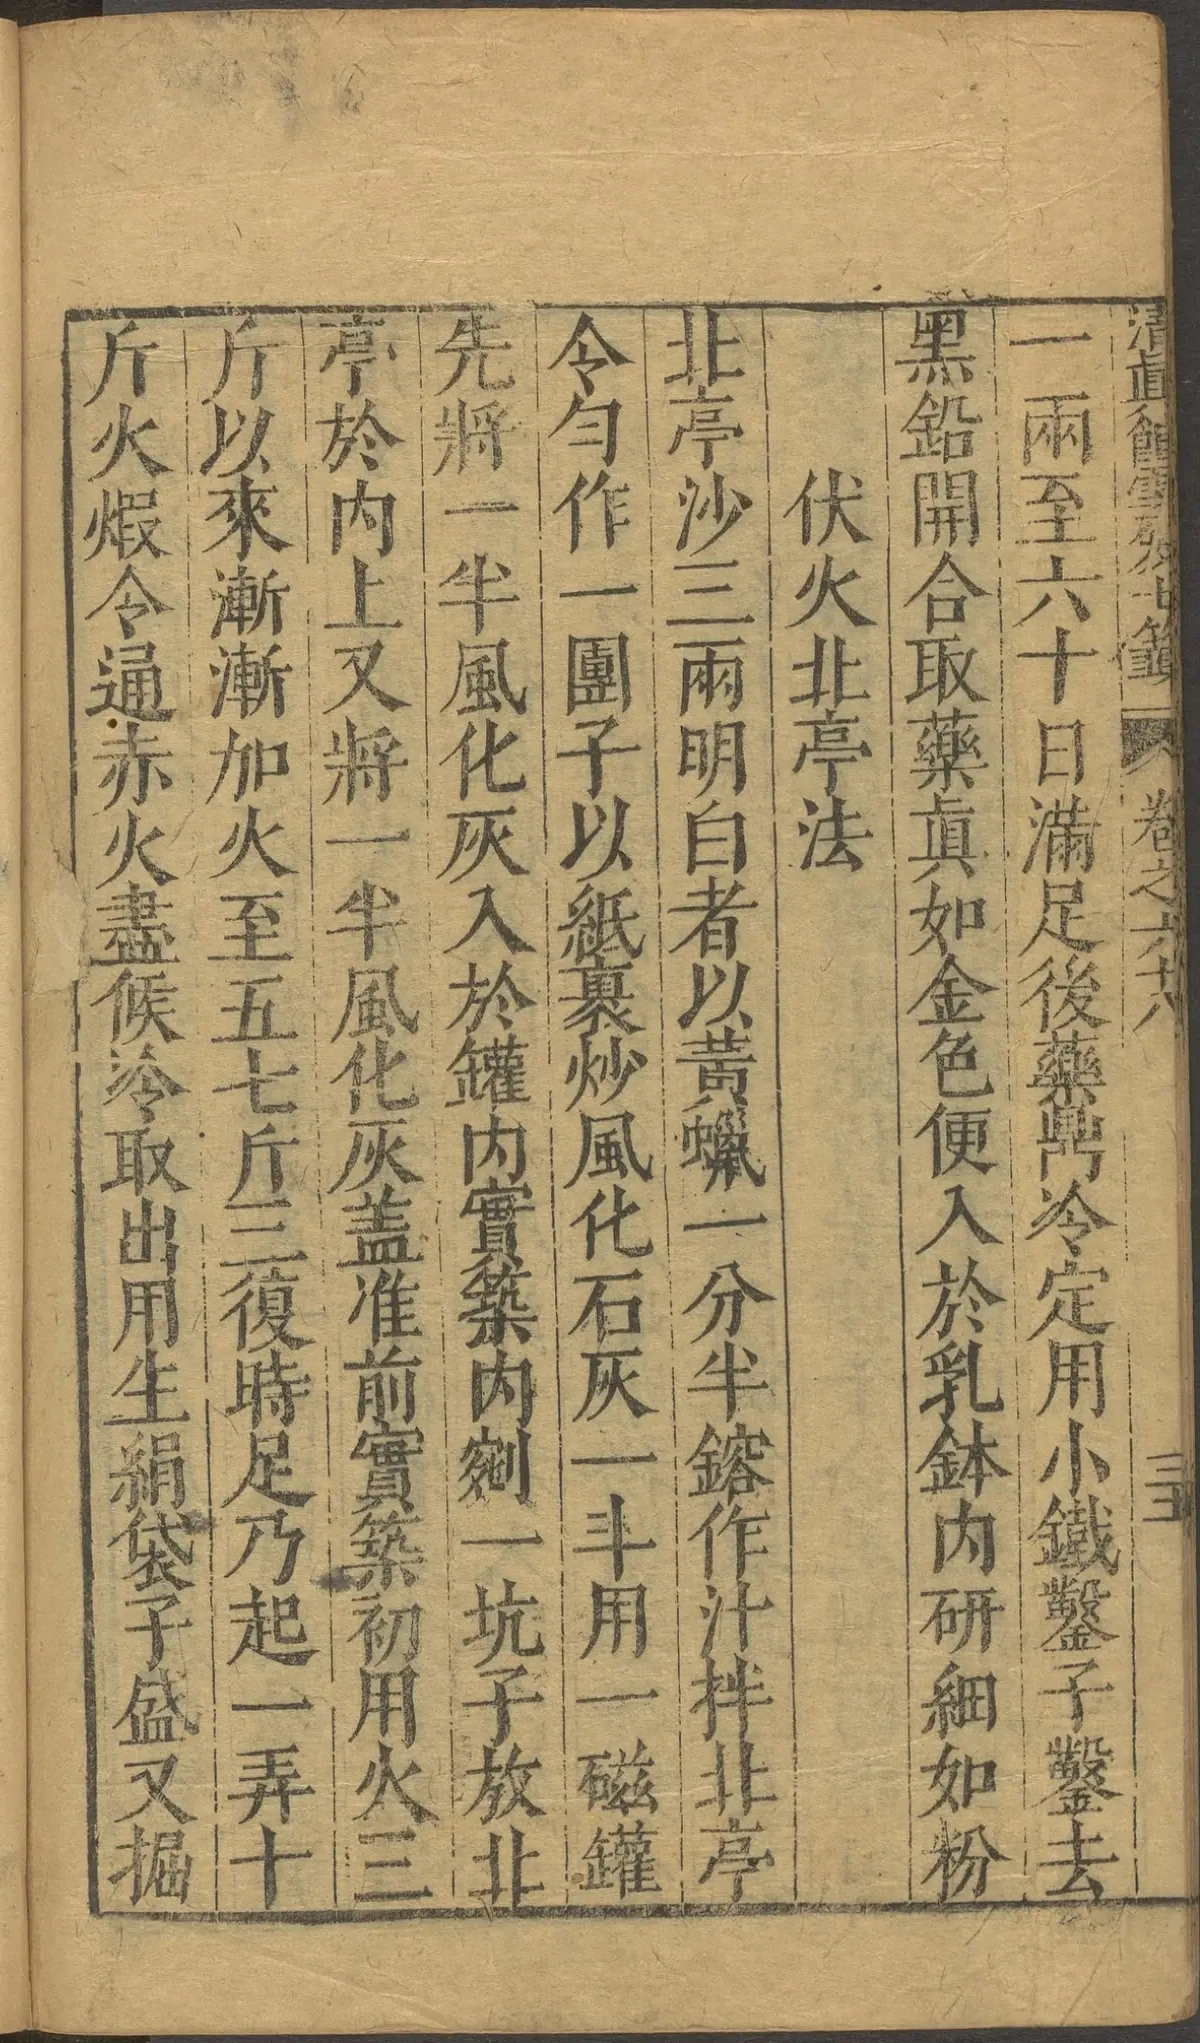 清眞館雲笈七籤 卷之六十八
一兩至六十日滿足後藥鼎冷定用小鐵鑿子鑿去
黑鉛開合取藥眞如金色便入於乳鉢內研細如粉
伏火北亭法
北亭沙三兩明白者以黃蠟一分半鎔作汁拌北亭
令勻作一團子以紙裹炒風化石灰一斗用一磁罐
先將一半風化灰入於罐內實築內剜一坑子放北
亭於內上又將一半風化灰盖准前實築初用火三
斤以來漸漸加火至五七斤三復時足乃起一弄十
斤火煅令通赤火盡候冷取出用生絹袋子盛又掘